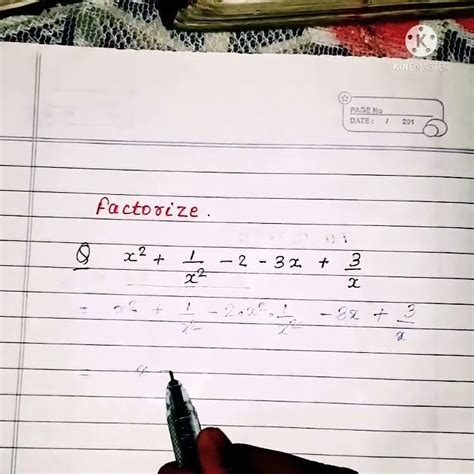 K
KINEMASTER
PAGE No
DATE: / 201
factorize.
Q x² + 1/x² - 2 - 3x + 3/x
= x² + 1/x² - 2·x²·1/x² - 3x + 3/x
=